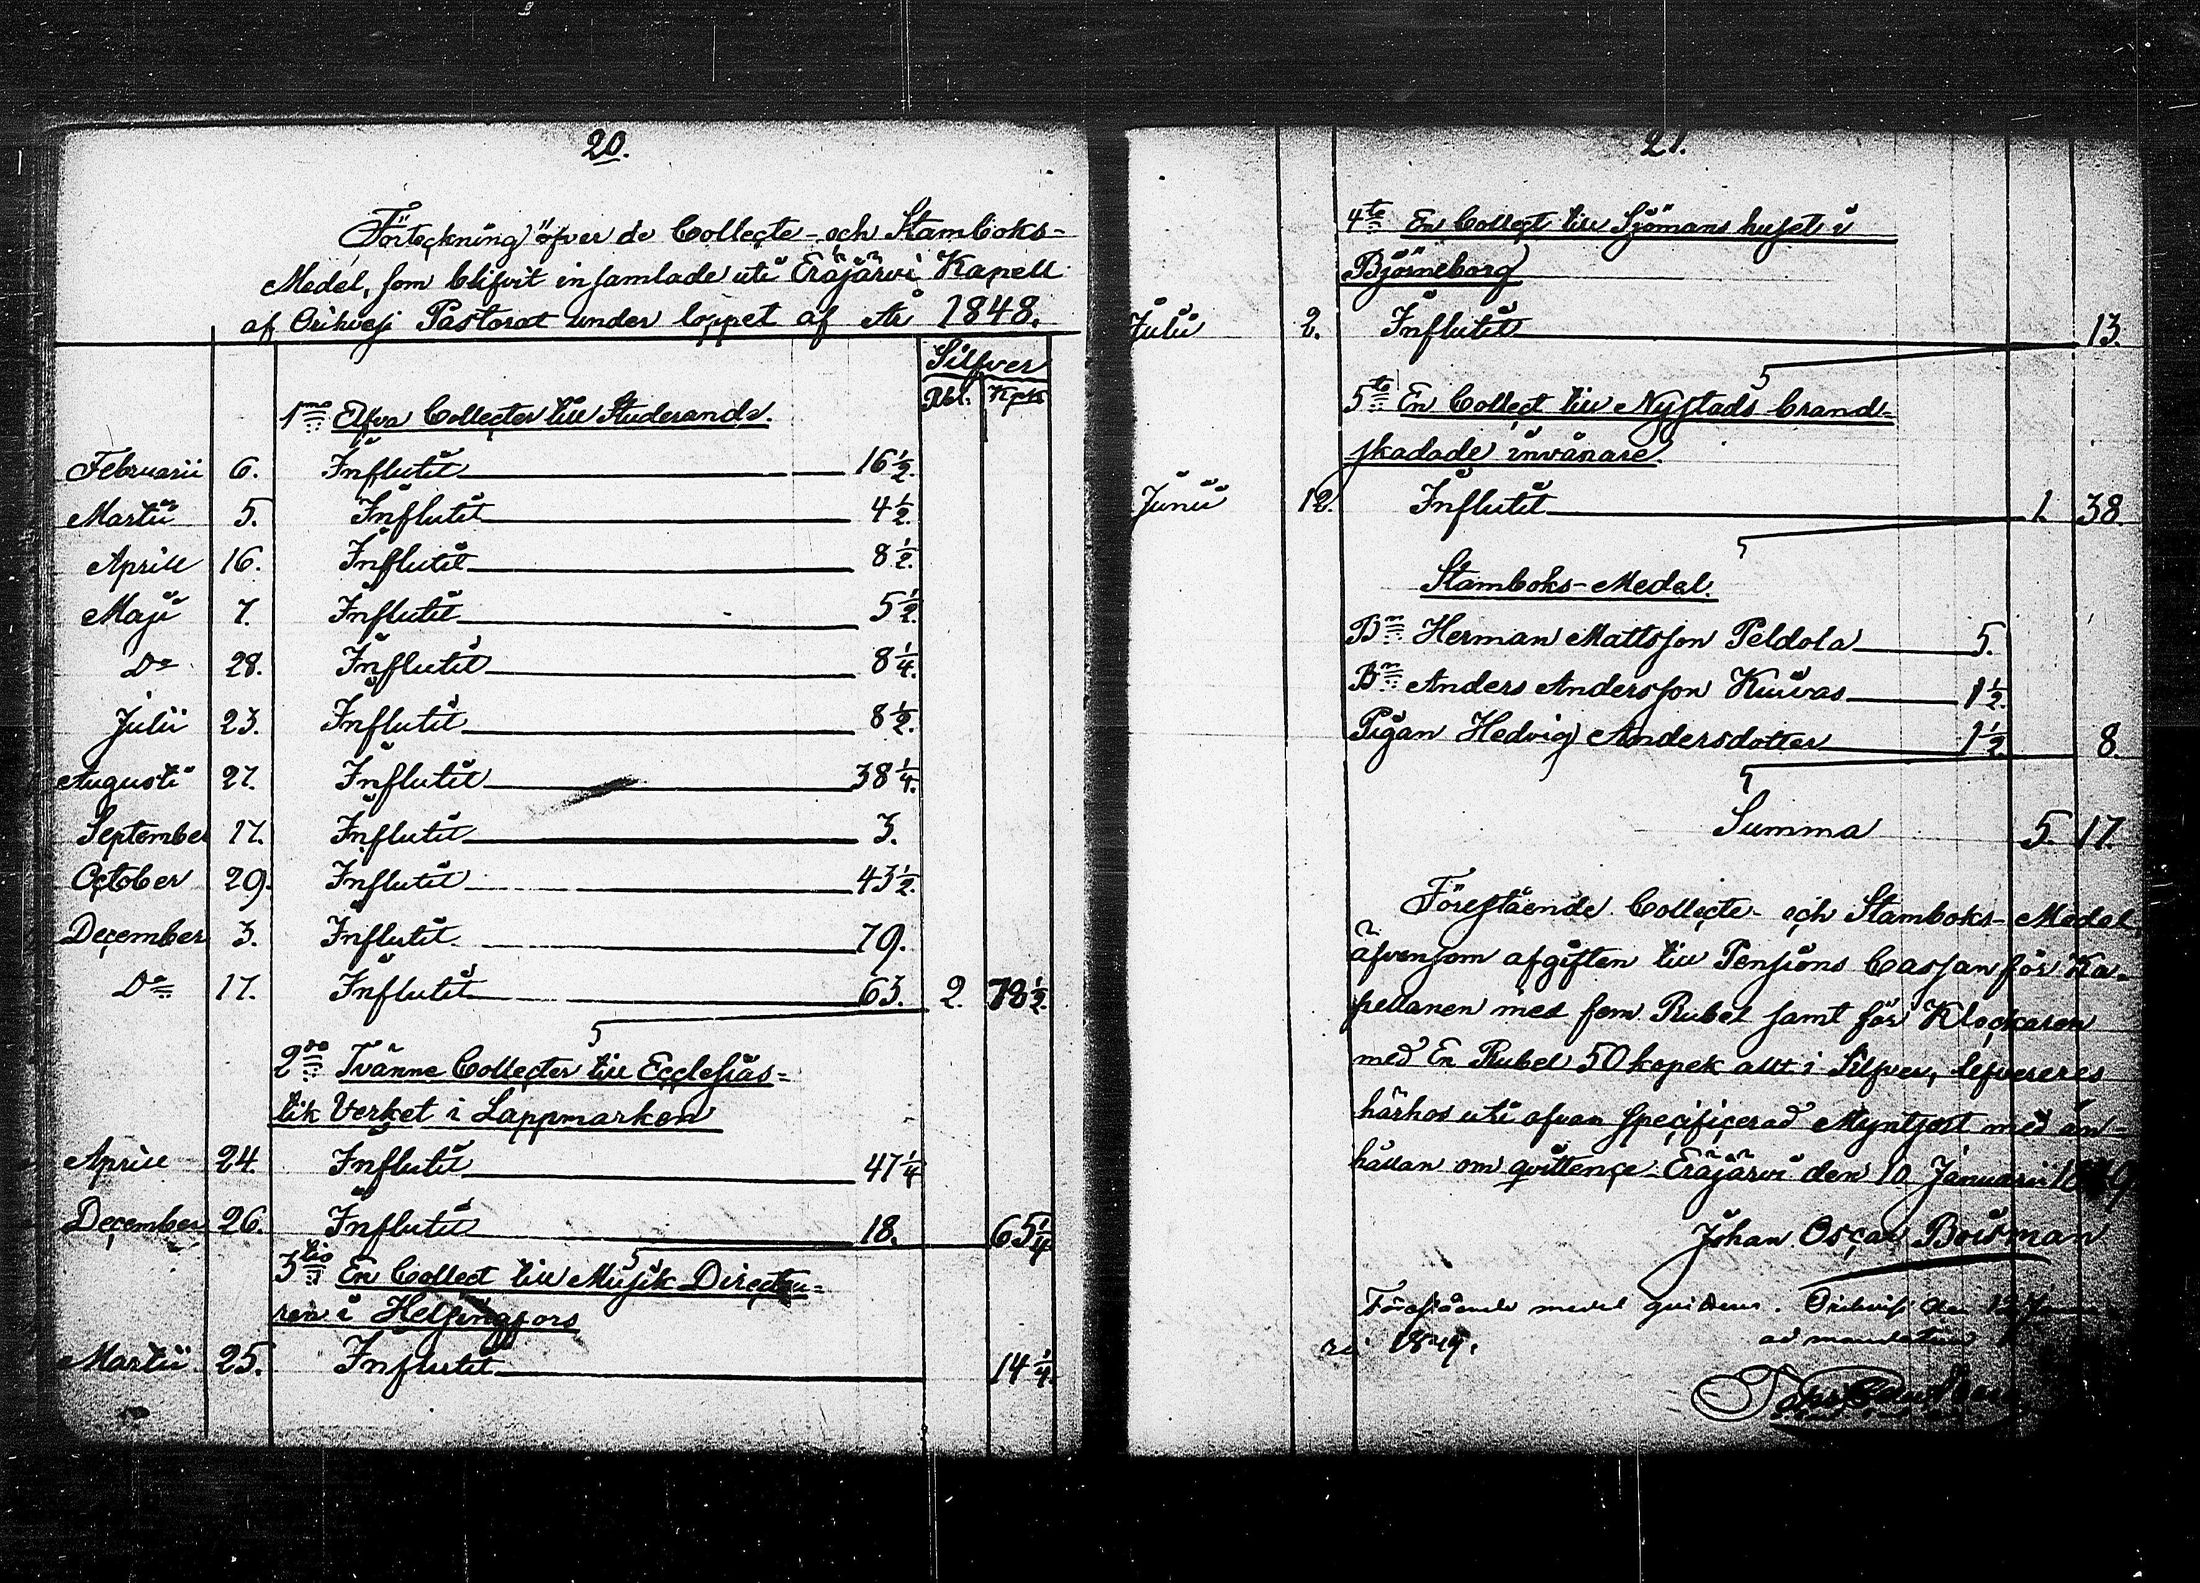 20.
Förteckning öfver de Collecte- och Stamboks-
Medel, som blifvit insamlade uti Eräjärvi Kapell
af Orihvesi Pastorat under loppet af År 1848.
Silfver
Rbl. Kpk
1mo Elfva Collecter till Studerande.
Februarii 6. Influtit 16 1/2.
Martii 5. Influtit 4 1/2.
Aprill 16. Influtit 8 1/2.
Maji 7. Influtit 5 1/2.
Do 28. Influtit 8 1/4.
Julii 23. Influtit 8 1/2.
Augusti 27. Influtit 38 1/4.
September 17. Influtit 3.
October 29. Influtit 43 1/2.
December 3. Influtit 79.
Do 17. Influtit 63. 2. 78 1/2.
2do Tvänne Collecter till Ecclesias-
tik Verket i Lappmarken
Aprill 24. Influtit 47 1/4
December 26. Influtit 18. 65 1/4
3tio En Collect till Musik Directeu-
ren i Helsingfors
Martii 25. Influtit 14 1/4.
21.
4to En Collect till Sjömans huset i
Björneborg
Julii 2. Influtit 13.
5to En Collect till Nystads brand-
skadade invånare
Junii 12. Influtit 1. 38.
Stamboks-Medel.
Bn Herman Mattsson Peldola 5.
Bn Anders Andersson Kuivas 1 1/2.
Pigan Hedvig Andersdotter 1 1/2 8.
Summa 5. 17.
Förestående Collecte- och Stamboks-Medel,
äfvensom afgiften till Pensions Cassan för Ka-
pellanen med fem Rubel samt för Klockaren
med En Rubel 50 kopek allt i Silfver, lefvereres
härhos uti ofvan specificerad Myntsort med an-
hållan om qvittence. Eräjärvi den 10 Januarii 1849
Johan Oscar Boisman
Förestående medel qvitteras. Orihvesi den 12 Janua-
rii 1849.
ad mandatum